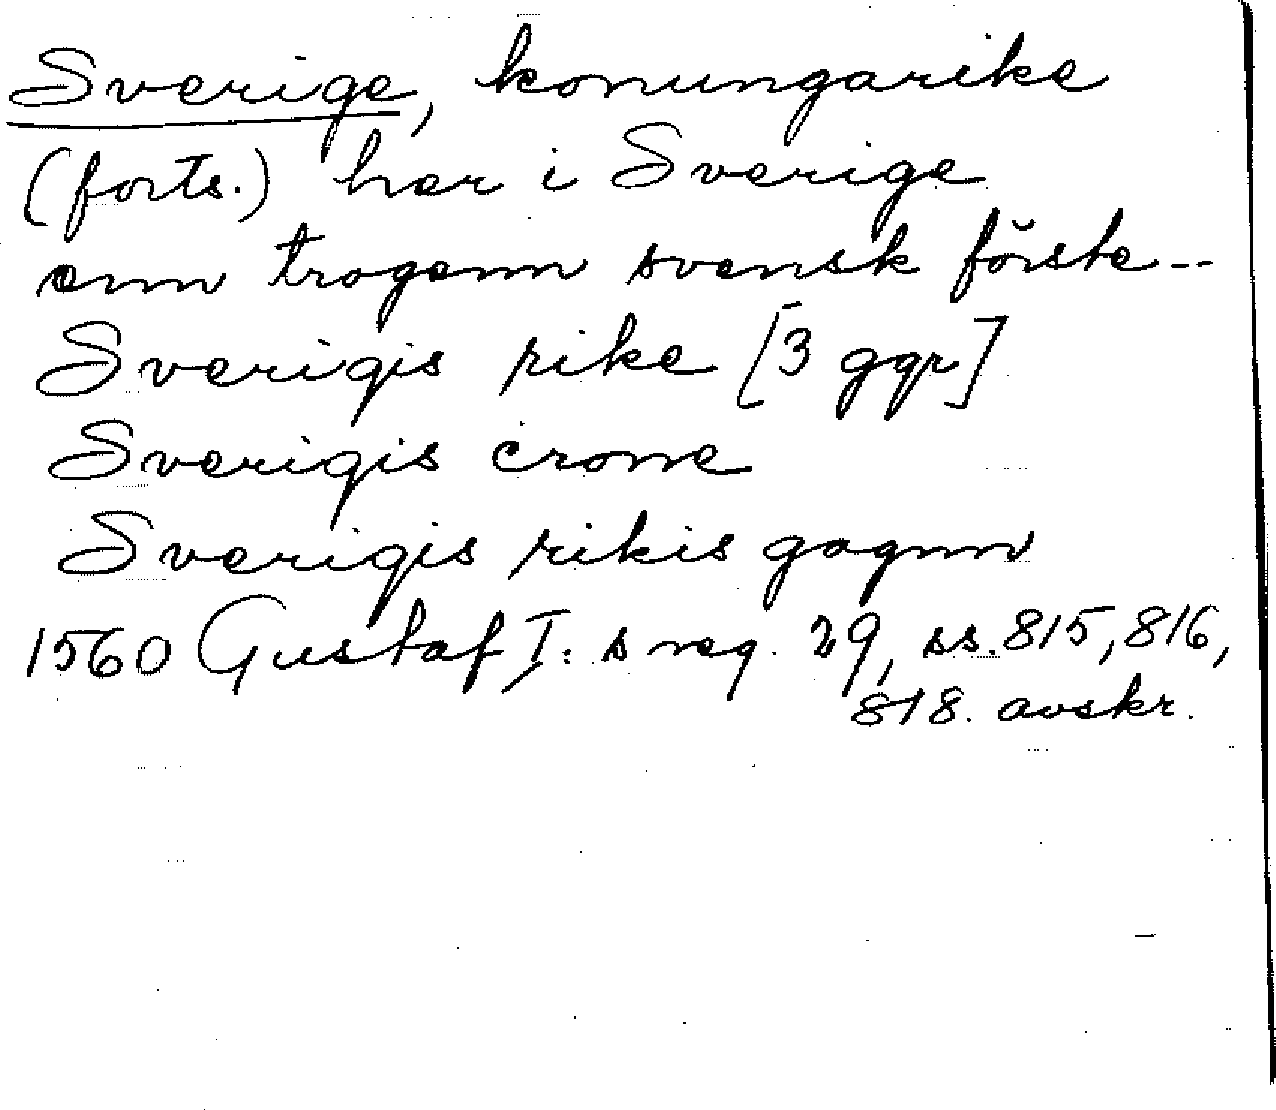 Sverige, konungarike
(forts.) her i Sverige
enn trogenn svensk förste --
Sverigis rike [3 ggr]
Sverigis crone
Sverigis rikis gagnn
1560 Gustaf I:s reg. 29, ss. 815, 816,
818. avskr.